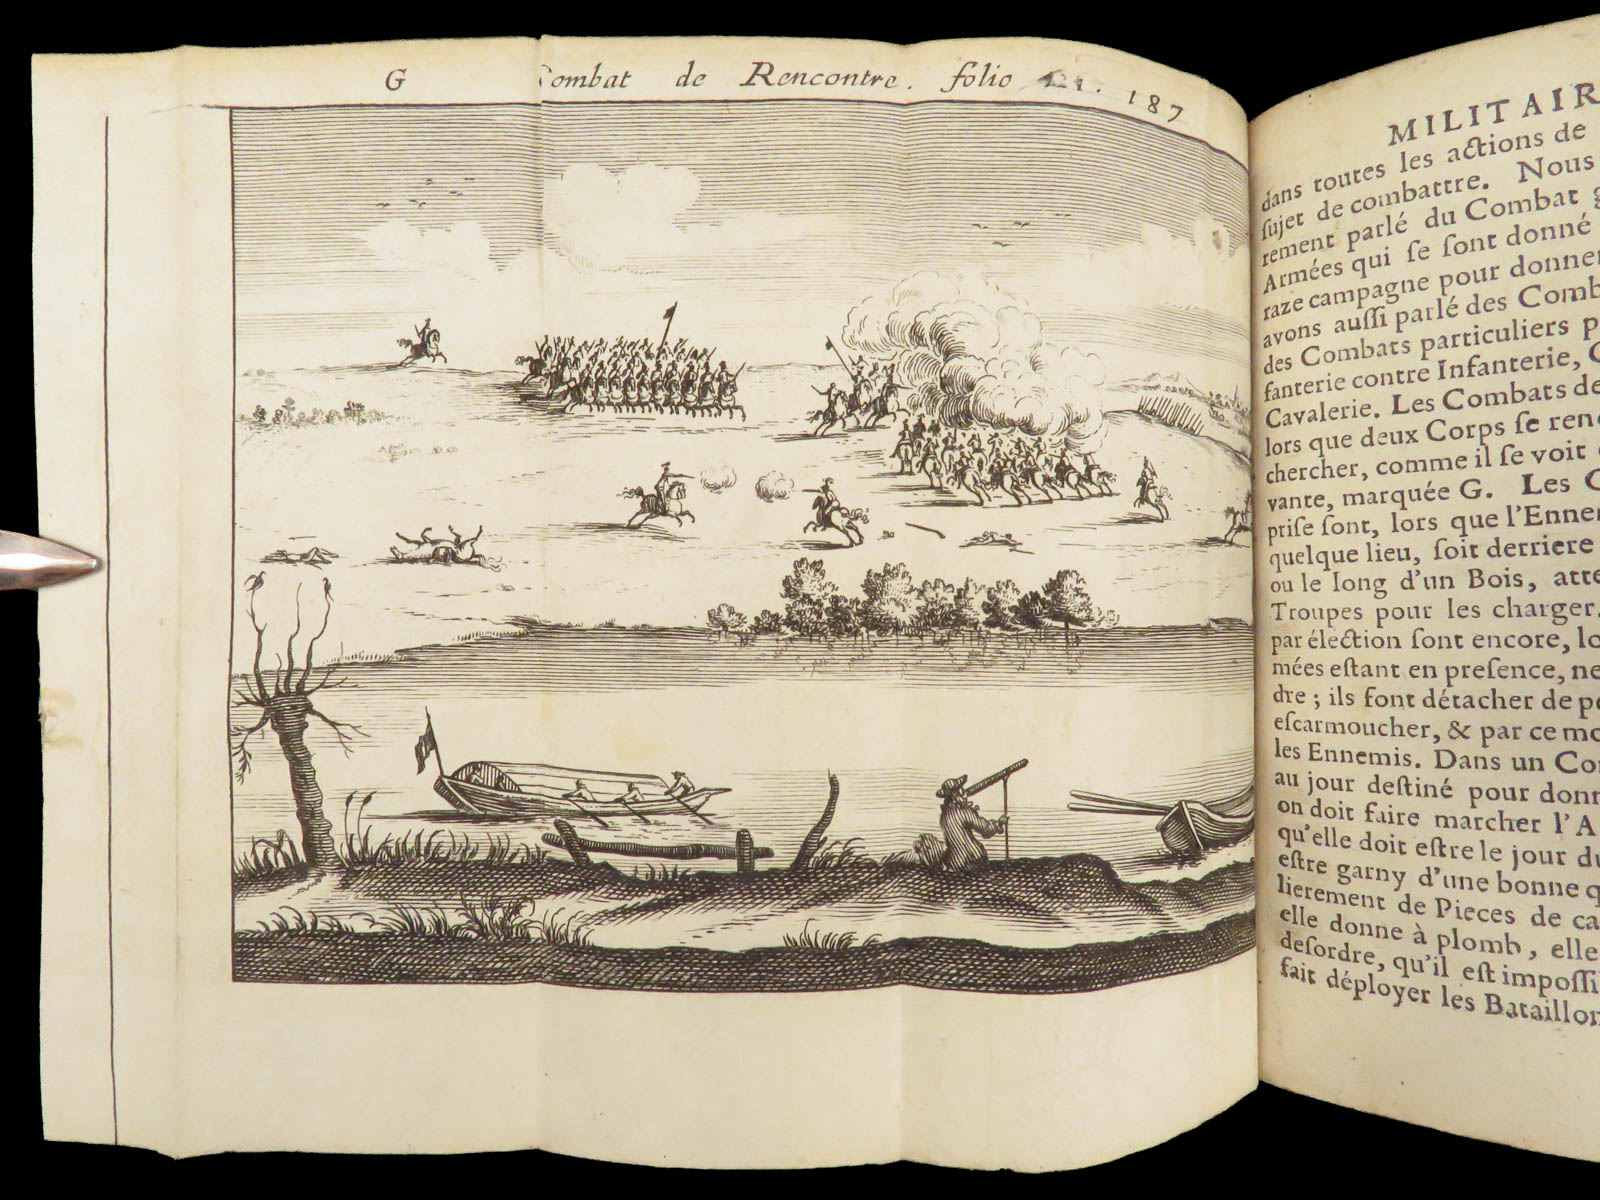 G Combat de Rencontre. folio 187
MILITAIR
dans toutes les actions de
ſujet de combattre. Nous
rement parlé du Combat g
Armées qui ſe ſont donné
raze campagne pour donner
avons auſſi parlé des Comb
des Combats particuliers p
fanterie contre Infanterie, C
Cavalerie. Les Combats de
lors que deux Corps ſe ren
chercher, comme il ſe voit
vante, marquée G. Les C
priſe ſont, lors que l'Enne
quelque lieu, ſoit derriere
ou le long d'un Bois, atte
Troupes pour les charger.
par élection ſont encore, lo
mées eſtant en preſence, ne
dre ; ils font détacher de p
eſcarmoucher, & par ce mo
les Ennemis. Dans un Co
au jour deſtiné pour donn
on doit faire marcher l'A
qu'elle doit eſtre le jour d
eſtre garny d'une bonne q
lierement de Pieces de ca
elle donne à plomb, elle
deſordre, qu'il eſt impoſſi
fait déployer les Bataillon